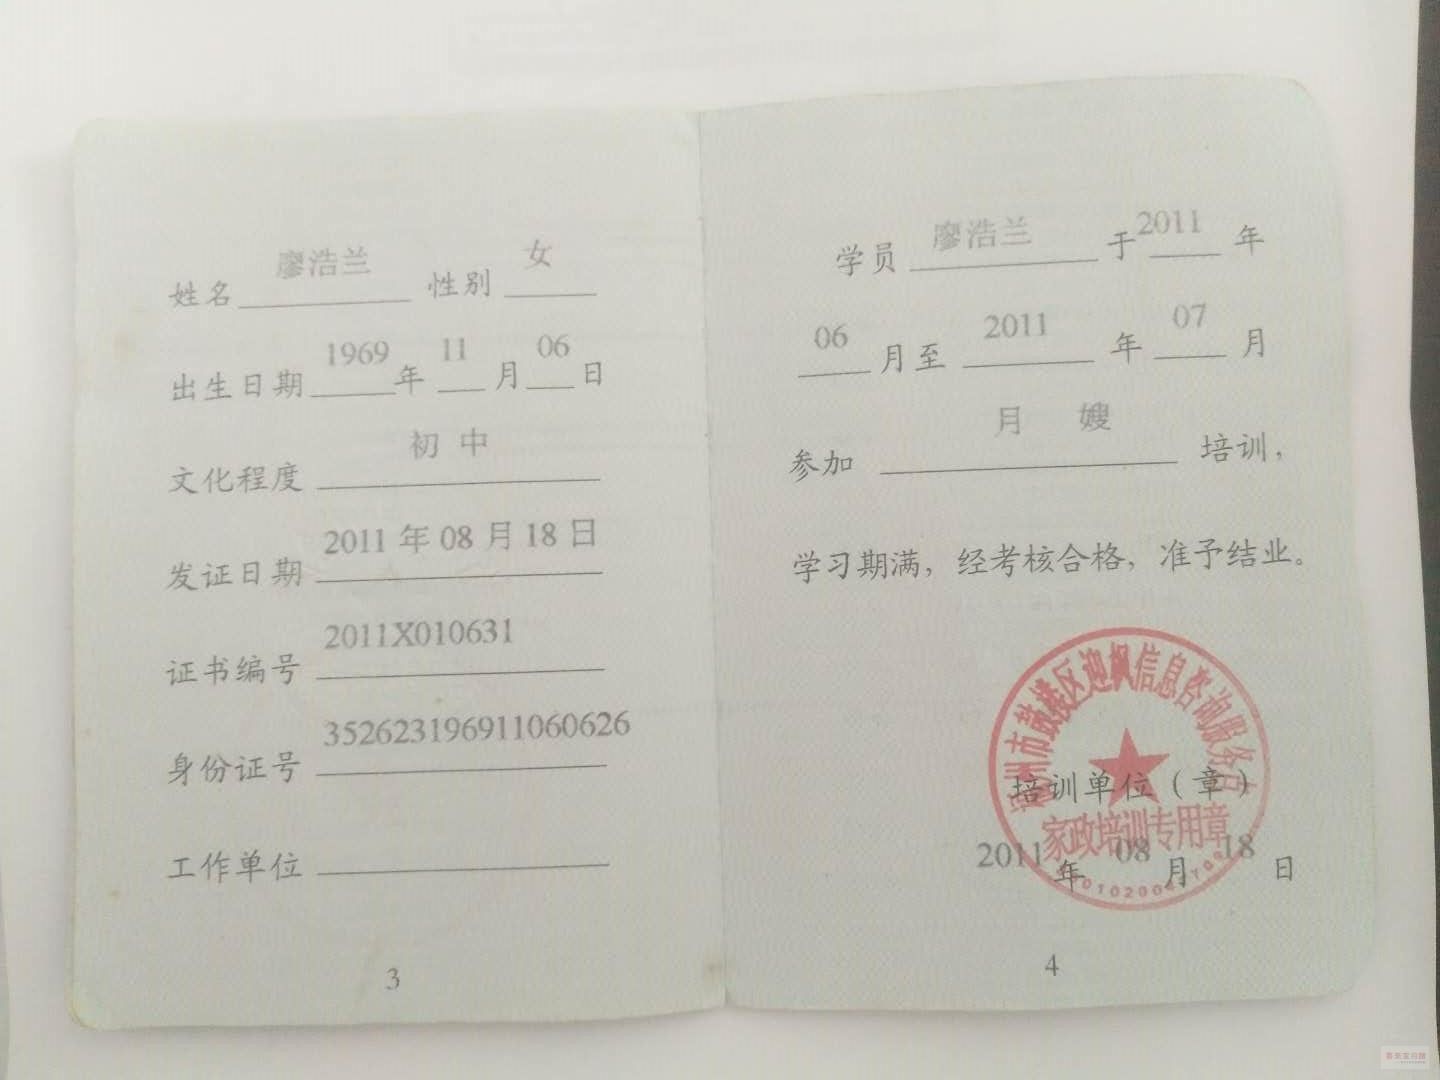 姓名 廖浩兰 性别 女
出生日期 1969 年 11 月 06 日
文化程度 初中
发证日期 2011 年 08 月 18 日
证书编号 2011X010631
身份证号 352623196911060626
工作单位
3
学员 廖浩兰 于 2011 年
06 月至 2011 年 07 月
参加 月 嫂 培训，
学习期满，经考核合格，准予结业。
州市鼓楼区迎枫信息咨询服务
培训单位（章）
家政培训专用章
2011 年 08 月 18 日
4